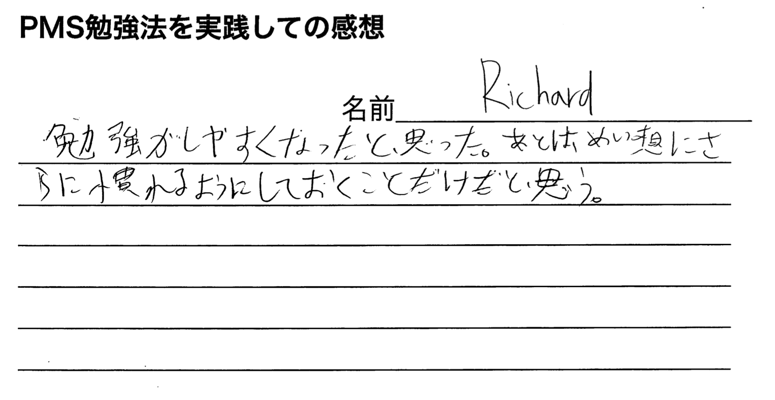 PMS勉強法を実践しての感想
名前 Richard
勉強がしやすくなったと、思った。あとは、めい想にさ
らに慣れるようにしておくことだけだと、思う。